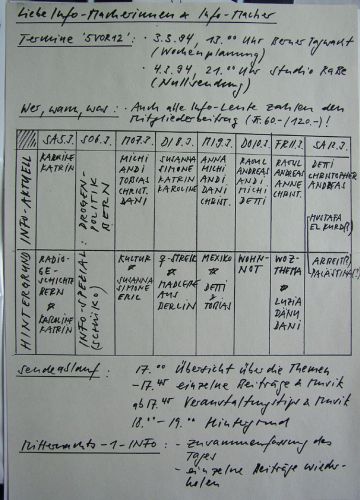 Liebe Info-Macherinnen & Info-Macher
Termine '5VOR12': · 3.3.94, 13.00 Uhr Berner Tagwacht
(Wochenplanung)
· 4.3.94, 21.00 Uhr Studio RaBe
(Nullsendung)
Wer, wann, was: · Auch alle Info-Leute zahlen den
Mitgliederbeitrag (Fr. 60.-/120.-)!
SA 5.3. SO 6.3. MO 7.3. DI 8.3. MI 9.3. DO 10.3. FR 11.3. SA 12.3.
INFO-AKTUELL
KATRIN
INFO-SPECIAL: DROGEN-
POLITIK
BERN
MICHI
ANDI
TOBIAS
CHRIST.
DANI
SUSANNA
SIMONE
KATRIN
KAROLINE
ANNA
MICHI
ANDI
DANI
CHRIST.
RAOUL
ANDREAS
ANDI
MICHI
DETTI
RAOUL
ANDREAS
ANNE
CHRIST.
DETTI
CHRISTOPHER
ANDREAS
MUSTAFA
EL KURD(?)
HINTERGRUND
RADIO-
GE-
SCHICHTE
BERN
KAROLINE
KATRIN
KULTUR
SUSANNA
SIMONE
ERIC
AUS
BERLIN
MEXIKO
DETTI
TOBIAS
WOHN-
NOT
WOZ-
THEMA
LUZIA
DANU
DANI
PALÄSTINA(?)
Sendeablauf: 17.00 Übersicht über die Themen
-17.45 einzelne Beiträge & Musik
ab 17.45 Veranstaltungstips & Musik
18.00 - 19.00 Hintergrund
Mitternachts-1-INFO: - Zusammenfassung des
Tages
- einzelne Beiträge wieder-
holen